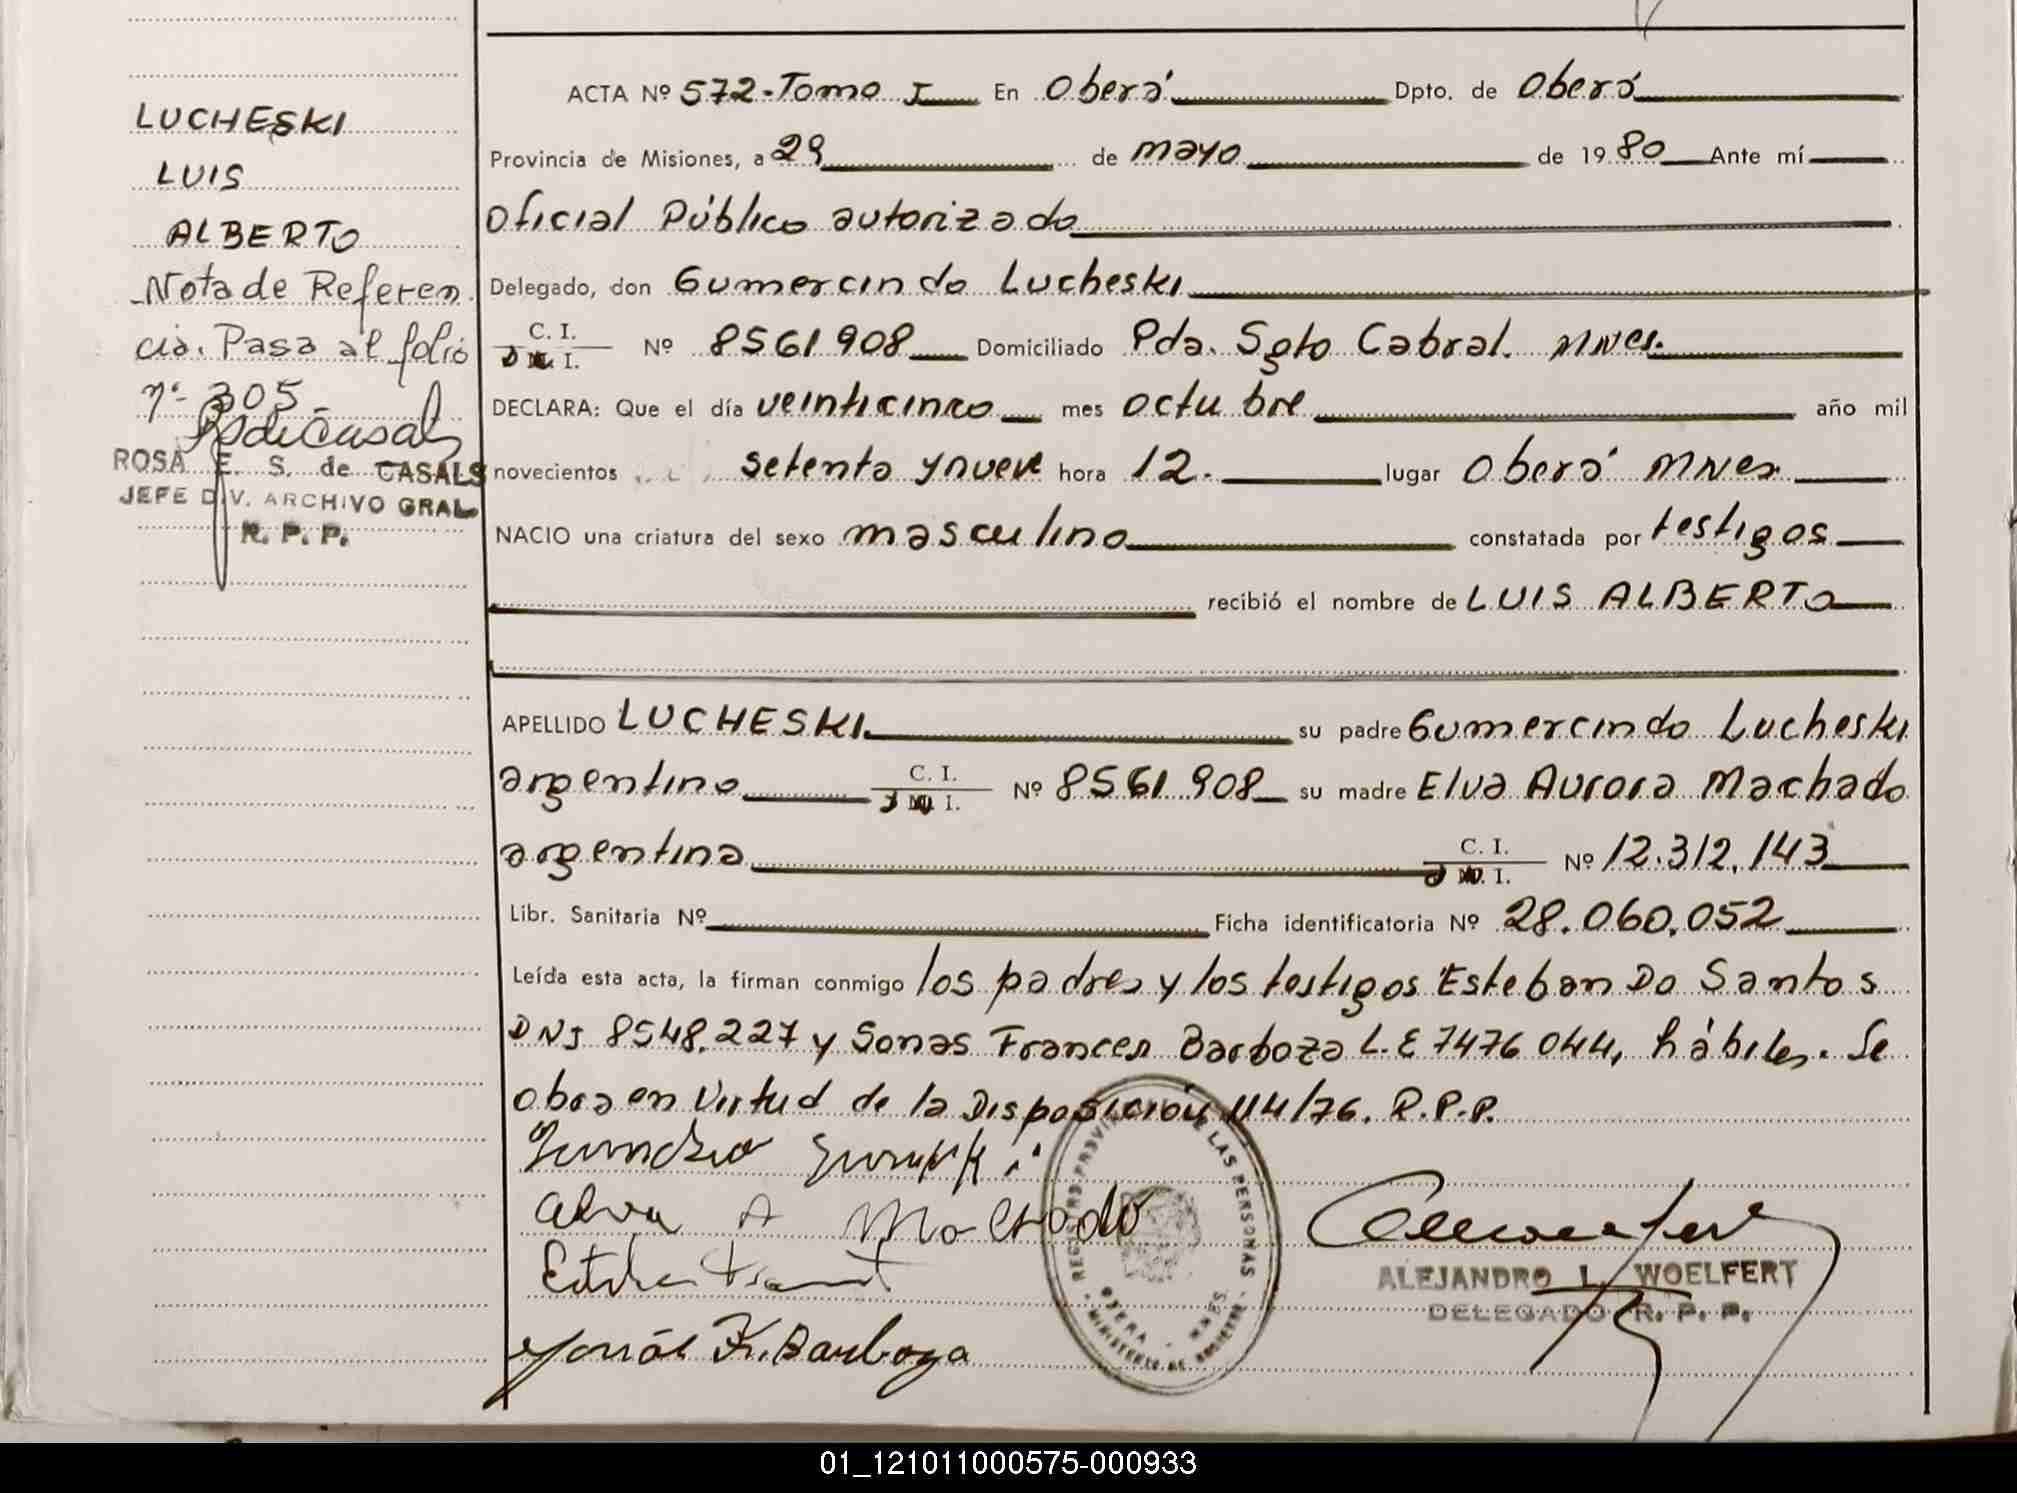 LUCHESKI
LUIS
ALBERTO
Nota de Referen
cia. Pasa al folio
nº 305
ROSA E. S. de CASALS
JEFE DIV. ARCHIVO GRAL.
R. P. P.
ACTA Nº 572-Tomo I En Oberá Dpto. de Oberá
Provincia de Misiones, a 29 de mayo de 1980 Ante mí
Oficial Público autorizado
Delegado, don Gumercindo Lucheski
C. I. Nº 8561908 Domiciliado Pda. Sgto Cabral. Mnes.
DECLARA: Que el día veinticinco mes octubre año mil
novecientos setenta y nueve hora 12. lugar Oberá Mnes
NACIO una criatura del sexo masculino constatada por testigos
recibió el nombre de LUIS ALBERTO
APELLIDO LUCHESKI su padre Gumercindo Lucheski
argentino C. I. Nº 8561908 su madre Elva Aurora Machado
argentina C. I. Nº 12.312.143
Libr. Sanitaria Nº Ficha identificatoria Nº 28.060.052
Leída esta acta, la firman conmigo los padres y los testigos Esteban Do Santos
DNI 8548.227 y Sonas Frances Barboza L.E 7476044, hábiles. Se
obra en virtud de la Disposición 114/76. R.P.P.
A Machado
F. Barboza
REGISTRO PROVINCIAL DE LAS PERSONAS
OBERA - MNES.
MINISTERIO DE GOBIERNO
ALEJANDRO L. WOELFERT
DELEGADO R. P. P.
01_121011000575-000933